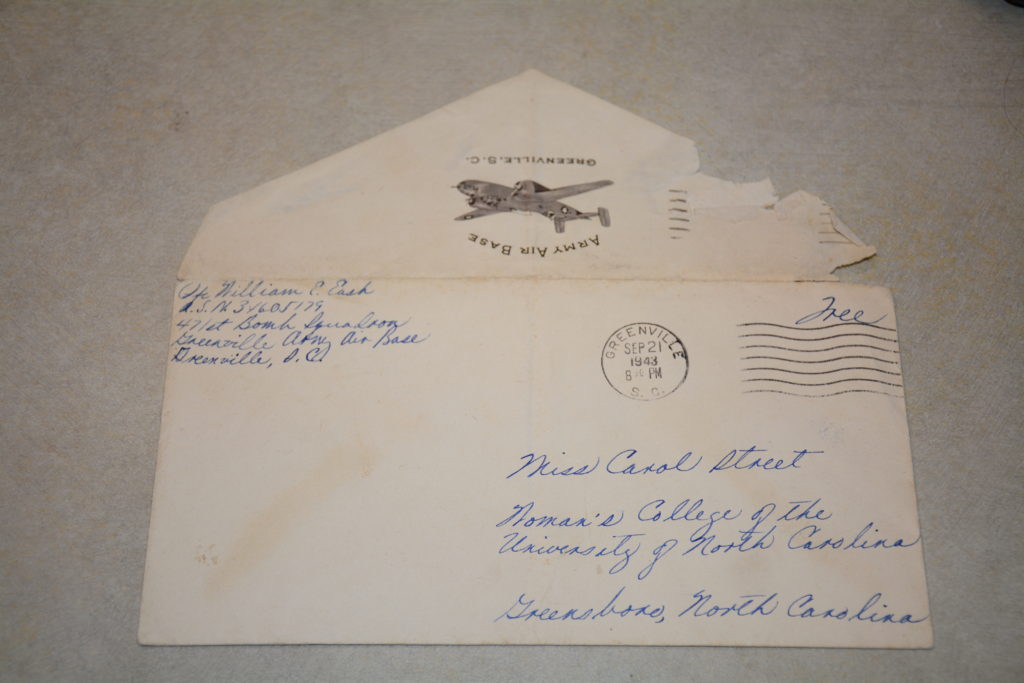 GREENVILLE, S.C.
ARMY AIR BASE
William E. Eash
A.S.N.
471st Bomb Squadron
Greenville Army Air Base
Greenville, S.C.
Free
GREENVILLE
SEP 21
1943
PM
S. C.
Miss Carol Street
Woman's College of the
University of North Carolina
Greensboro, North Carolina